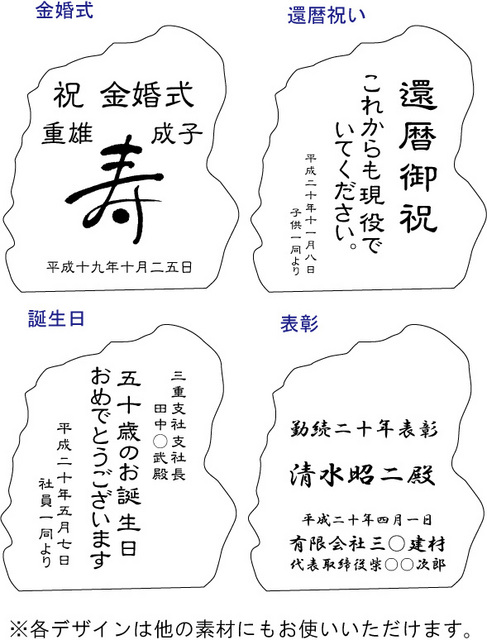 金婚式
祝 金婚式
重雄 成子
寿
平成十九年十月二五日
還暦祝い
還暦御祝
これからも現役で
いてください。
平成二十年十一月八日
子供一同より
誕生日
三重支社支社長
田中〇武殿
五十歳のお誕生日
おめでとうございます
平成二十年五月七日
社員一同より
表彰
勤続二十年表彰
清水昭二殿
平成二十年四月一日
有限会社三〇建材
代表取締役柴〇〇次郎
※各デザインは他の素材にもお使いいただけます。